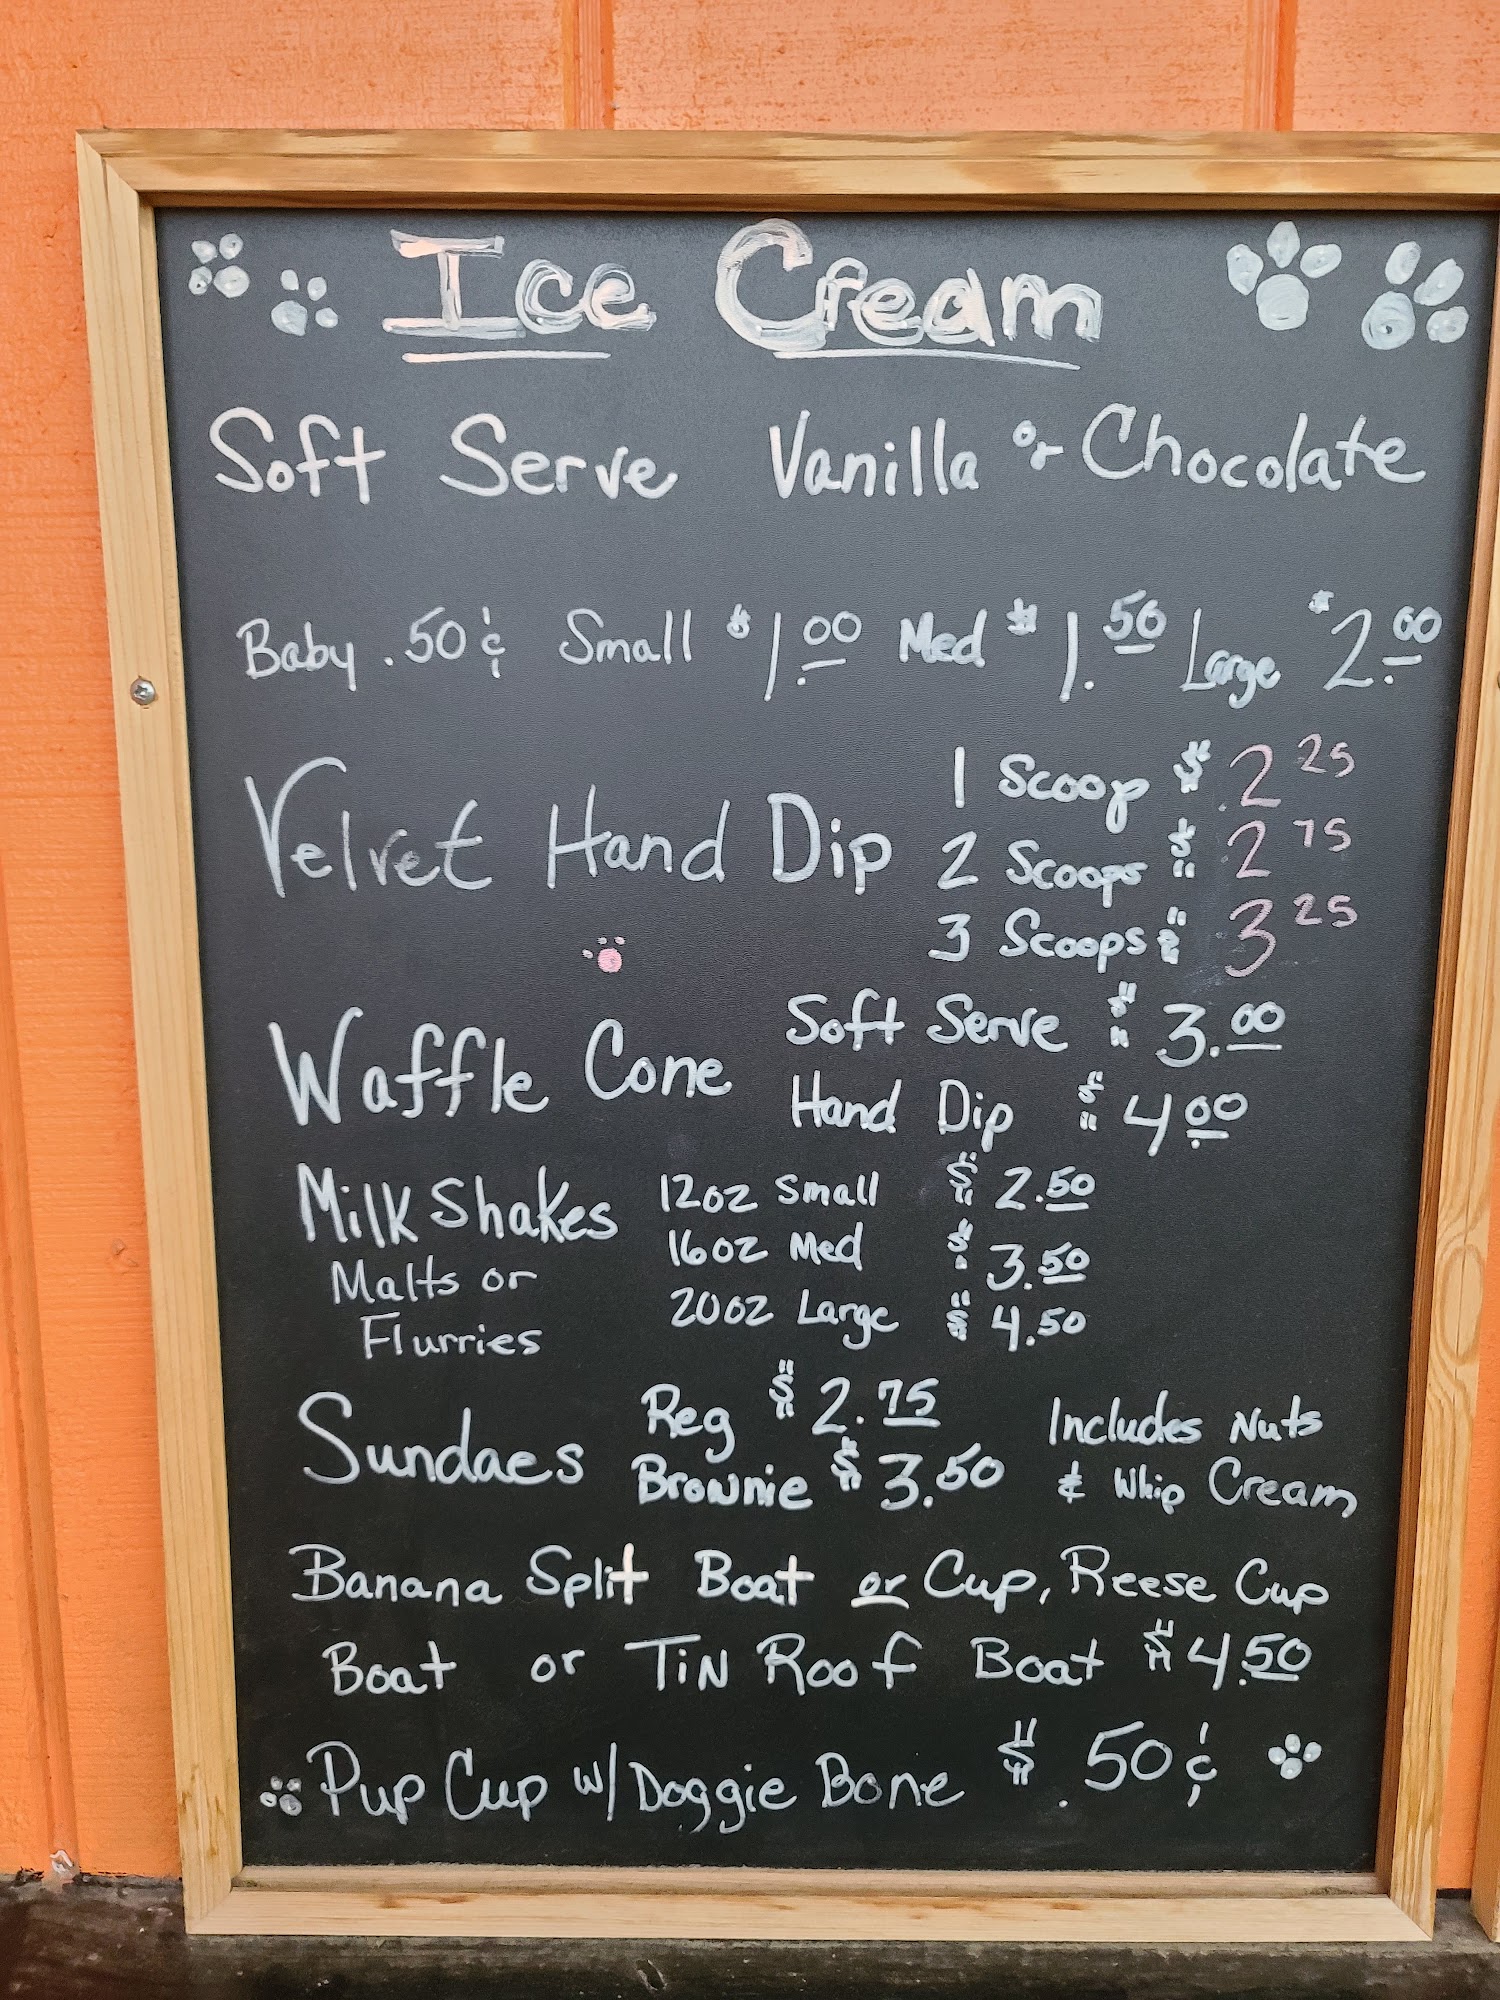 Ice Cream
Soft Serve Vanilla or Chocolate
Baby .50¢ Small $1.00 Med $1.50 Large $2.00
Velvet Hand Dip
1 Scoop $2 25
2 Scoops $2 75
3 Scoops $3 25
Waffle Cone
Soft Serve $3.00
Hand Dip $4.00
Milk Shakes
Malts or
Flurries
12oz Small $2.50
16oz Med $3.50
20oz Large $4.50
Sundaes
Reg $2.75
Brownie $3.50
Includes Nuts
& Whip Cream
Banana Split Boat or Cup, Reese Cup
Boat or Tin Roof Boat $4.50
Pup Cup w/ Doggie Bone $.50¢